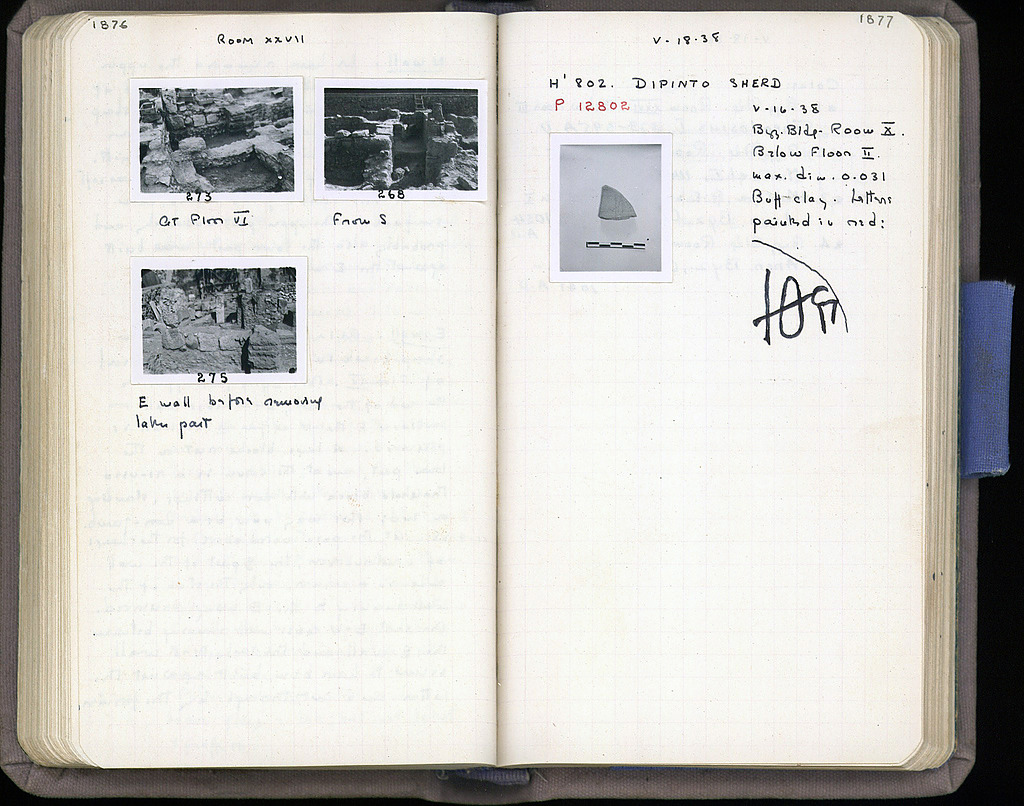 1876
Room XXVII
273
268
at Floor VI
From S
275
E wall before removing
later part
1877
V-18-38
H' 802. DIPINTO SHERD
P 12802
V-16-38
Byz. Bldg. Room X.
Below Floor II.
max. dim. 0.031
Buff clay. Letters
painted in red: